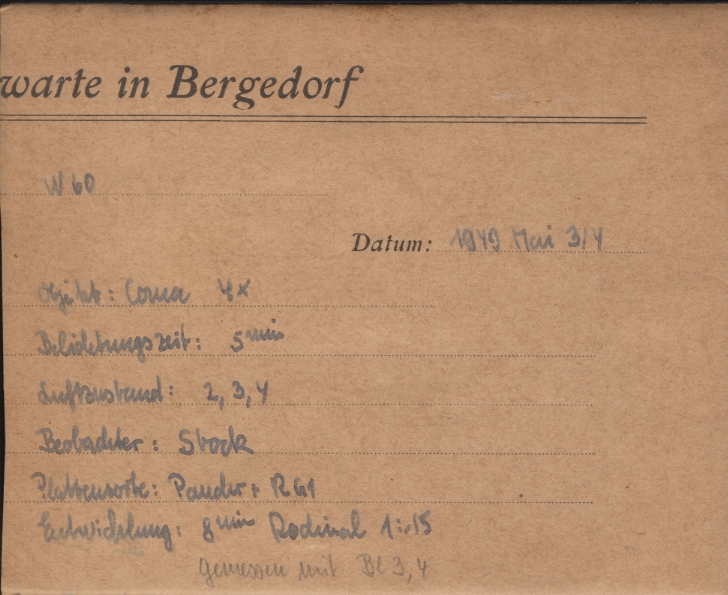 warte in Bergedorf
W 60
Datum: 1949 Mai 3/4
Objekt: Coma 4x
Belichtungszeit: 5 min
Luftzustand: 2, 3, 4
Beobachter: Stock
Plattensorte: + RG1
Entwicklung: 8 min Rodinal 1:15
gemessen mit Bl 3, 4